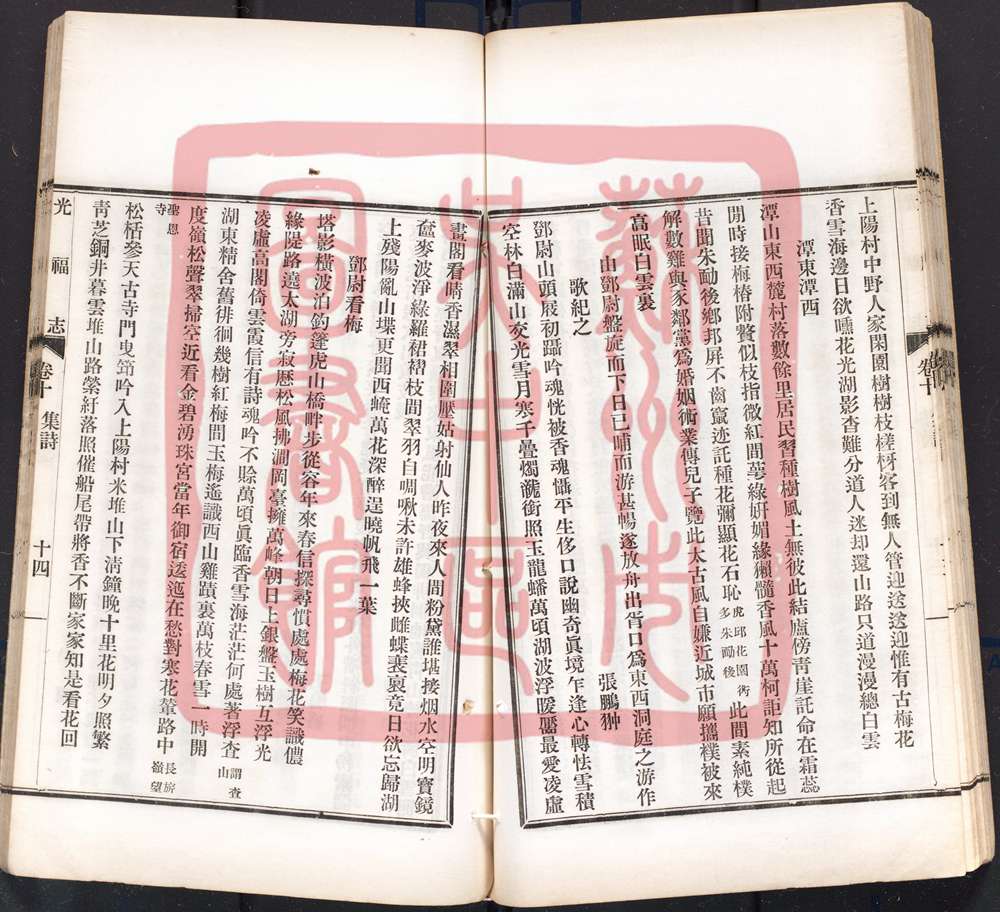 上陽村中野人家閑園樹樹枝槎枒客到無人管迎送送迎惟有古梅花
香雪海邊日欲曛花光湖影杳難分道人迷却還山路只道漫漫總白雲
潭東潭西
潭山東西麓村落數餘里居民習種樹風土無彼此結廬傍青崖託命在霜蕊
閒時接梅椿附贅似枝指微紅間萼綠姸媚緣獺髓香風十萬柯詎知所從起
昔聞朱勔後鄉邦屏不齒竄迹託種花彌顯花石恥
虎邱花園衖
多朱勔後
此間素純樸
解數雞與豕鄰黨爲婚姻術業傳兒子覽此太古風自嫌近城市願攜樸被來
高眠白雲裏
由鄧尉盤旋而下日已晡而游甚暢遂放舟出胥口爲東西洞庭之游作
歌紀之
張鵬翀
鄧尉山頭展初躡吟魂恍被香魂懾平生侈口說幽奇眞境乍逢心轉怯雪積
空林白滿山交光雪月寒千疊燭龍銜照玉龍蟠萬頃湖波浮暖靨最愛凌虛
畫閣看晴香濕翠相圍壓姑射仙人昨夜來人間粉黛誰堪接烟水空明寶鏡
奩麥波淨綠羅裙褶枝間翠羽自啁啾未許雄蜂挾雌蝶裵裒竟日欲忘歸湖
上殘陽亂山堞更聞西崦萬花深醉逞曉帆飛一葉
鄧尉看梅
塔影橫波泊釣篷虎山橋畔步從容年來春信探尋慣處處梅花笑識儂
緣隄路遶太湖旁寂歷松風拂澗岡臺擁萬峰朝日上銀盤玉樹互浮光
凌虛高閣倚雲霞信有詩魂吟不賒萬頃眞臨香雪海茫茫何處著浮查
謂查
山
湖東精舍舊徘徊幾樹紅梅間玉梅遙識西山雞蹟裏萬枝春雪一時開
度嶺松聲翠掃空近看金碧湧珠宮當年御宿逶迤在愁對寒花輦路中
長旂
嶺望
聖恩
寺
松栝參天古寺門曳筇吟入上陽村米堆山下淸鐘晚十里花明夕照繁
靑芝銅井暮雲堆山路縈紆落照催船尾帶將香不斷家家知是看花回
光福志
卷十
集詩
十四